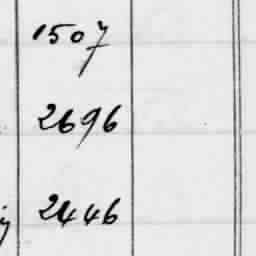 1507
2696
2446